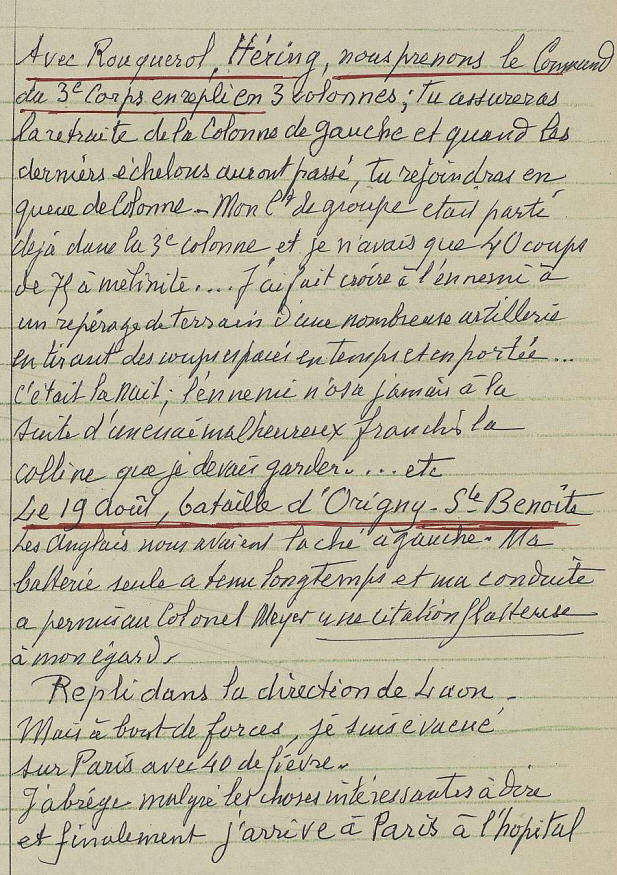 Avec Rouquerol, Héring, nous prenons le Command
du 3e Corps en repli en 3 colonnes ; tu assureras
la retraite de la Colonne de gauche et quand les
derniérs échelons auront passé, tu rejoindras en
queue de Colonne - Mon Ct de groupe etait parti
déjà dans la 3e colonne et je n'avais que 40 coups
de 75 à mélinité.... J'ai fait croire à l'énnemi à
un repérage de terrain d'une nombreuse artillerie
en tirant des coups espacés en temps et en portée ...
c'était la nuit ; l'énnemi n'osa jamais à la
suite d'un malheureux franchir la
colline que je devais garder. ... etc
Le 19 août, bataille d'Origny - Ste Benoîte
Les Anglais nous avaient laché à gauche. Ma
batterie seule a tenu longtemps et ma conduite
a permis au Colonel Meyer une citation flatteuse
à mon égard.
Repli dans la direction de Laon -
Mais à bout de forces, je suis évacué
sur Paris avec 40 de fièvre.
J'abrége malgré les choses intéressantes à dire
et finalement j'arrive à Paris à l'hopital